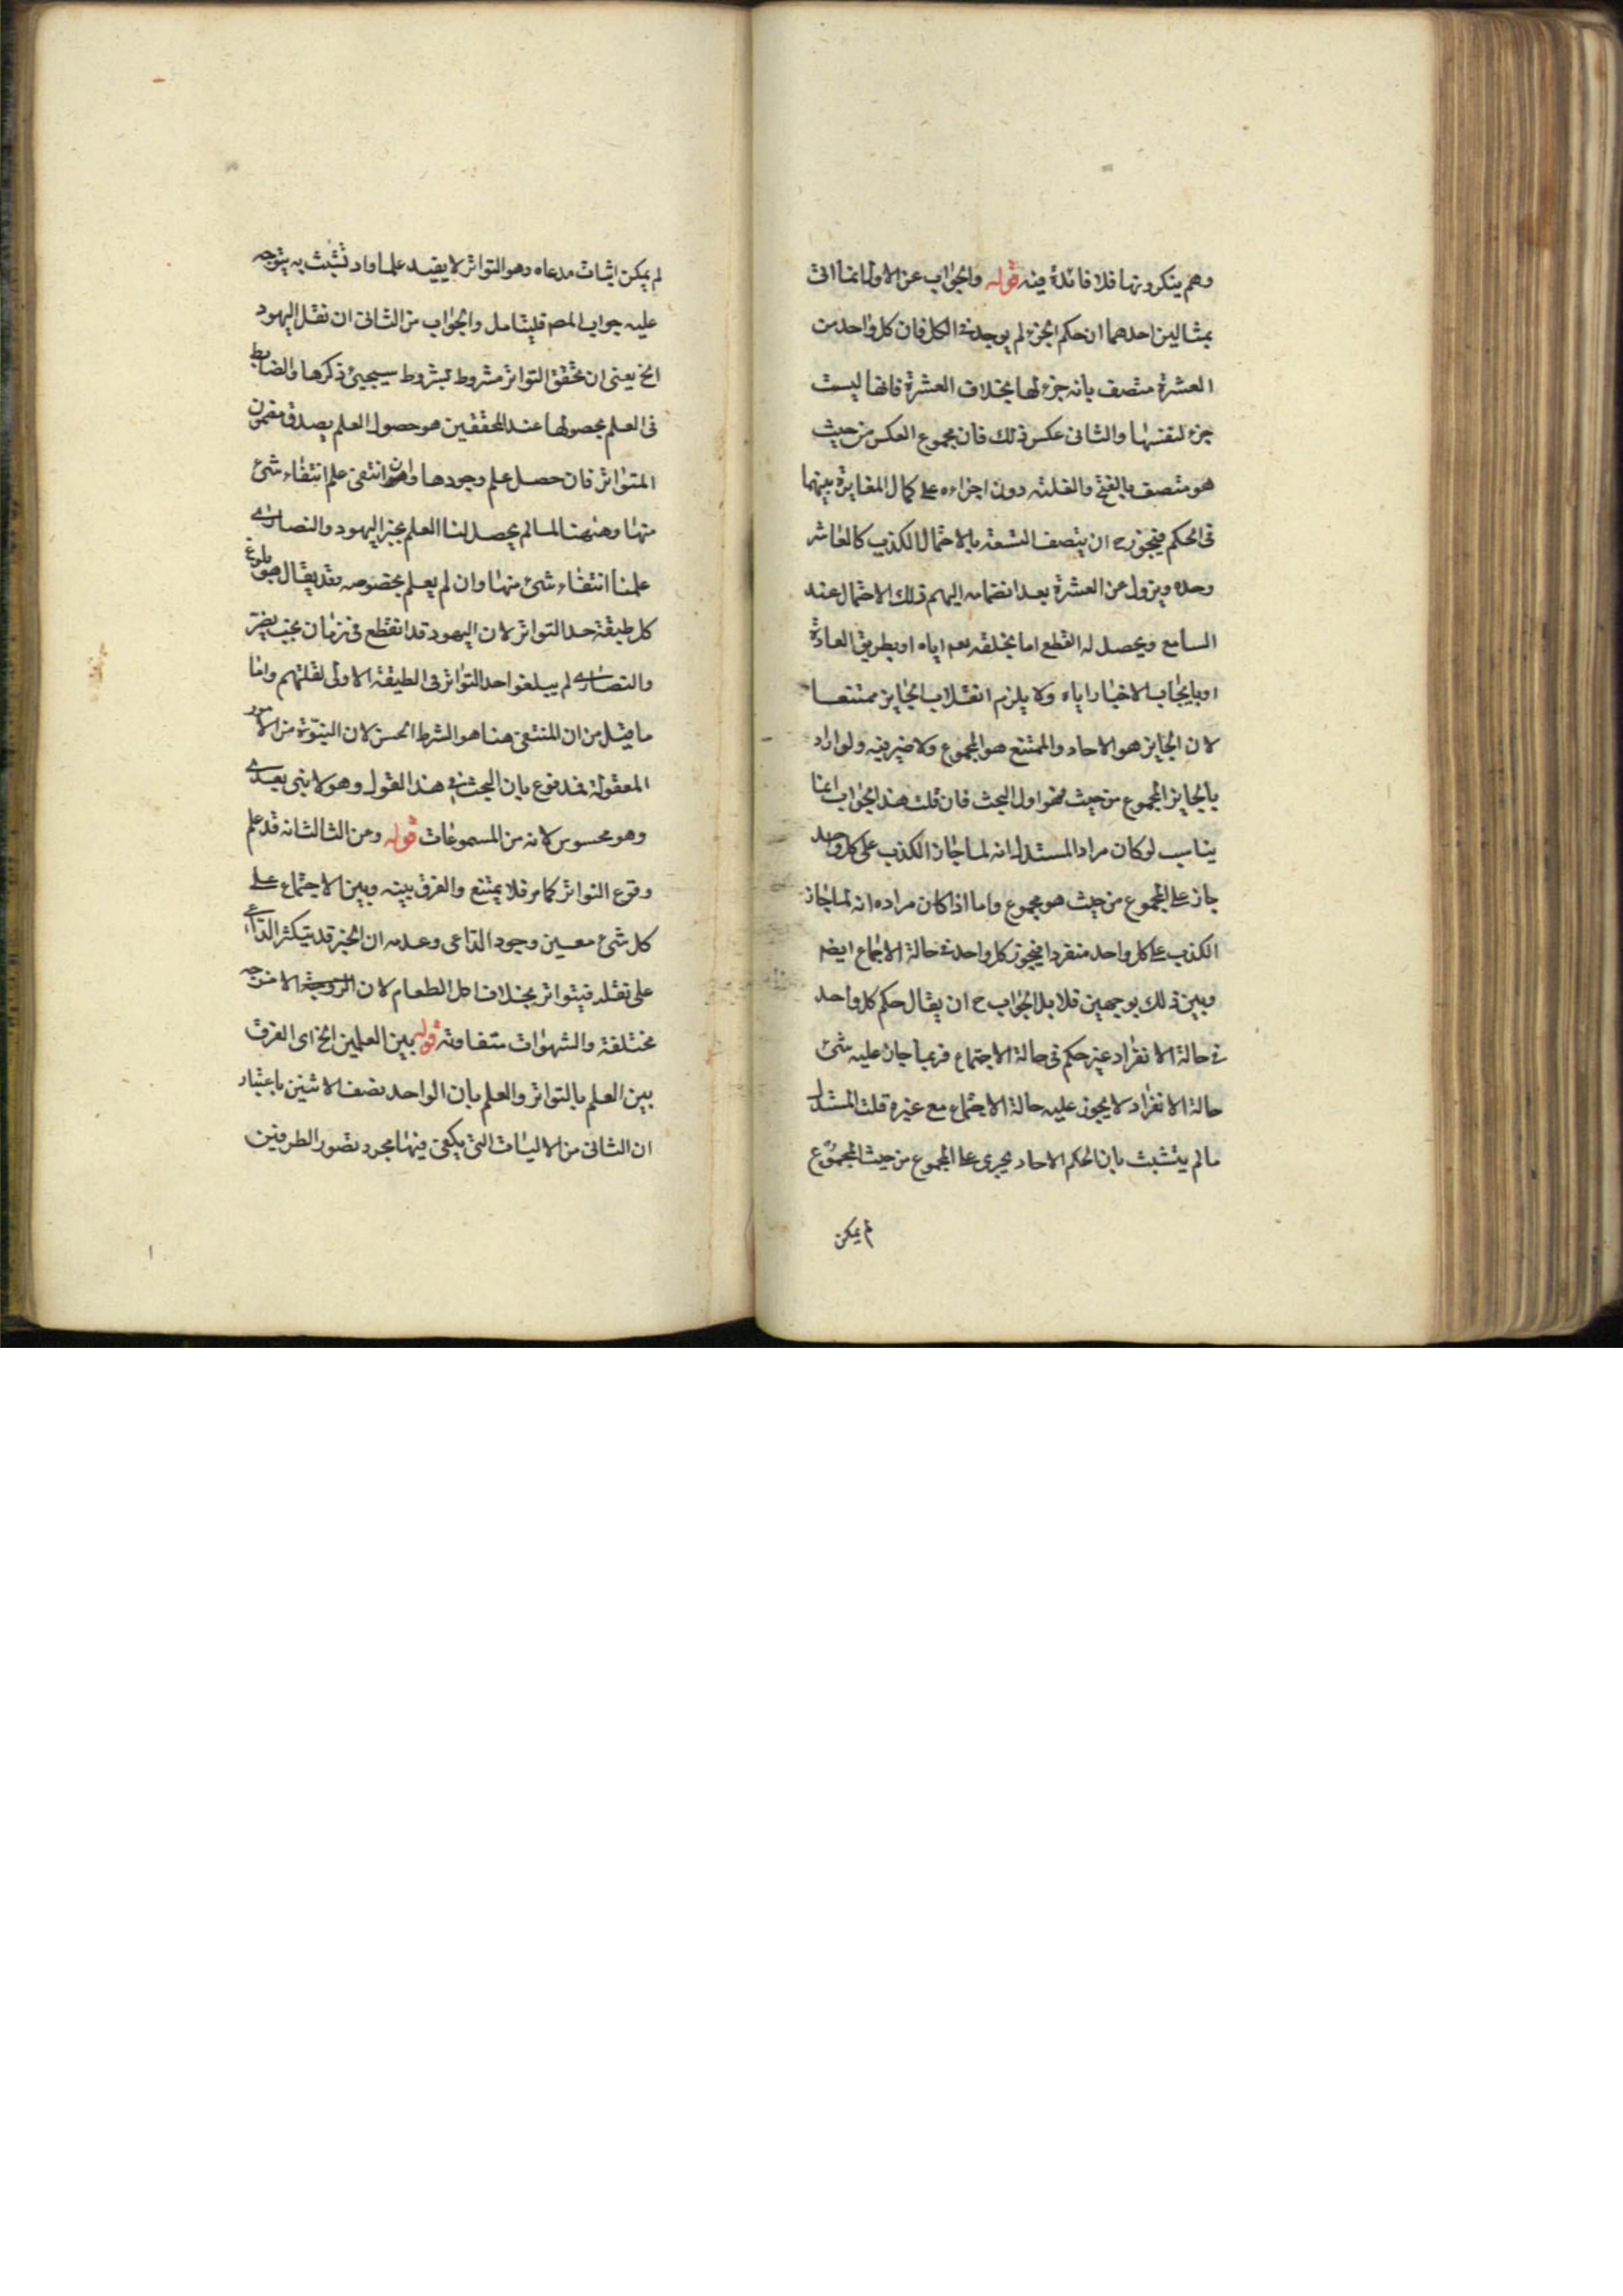 وهم ينكرونها فلا فائدة فيه قوله والجواب عن الاول انما اتى
بمثالين احدهما ان حكم الجزء لم يوجد في الكل فان كل واحد من
العشرة متصف بانه جزء لها بخلاف العشرة فانها ليست
جزء لنفسها والثانى عكس ذلك فان مجموع العكس من حيث
هو متصف بالفتح والغلبة دون اجزاءه على كمال المغايرة بينهما
فى الحكم فيجوز ح ان يتصف التسعة بالاحتمال الكذب كالعاشر
وحده ويزول عن العشرة بعد انضمامه اليهم ذلك الاحتمال عند
السامع ويحصل له القطع اما بخلقه تعم اياه او بطريق العادة
او بايجاب الاخبار اياه ولا يلزم انقلاب الجايز ممتنعا
لان الجايز هو الاحاد والممتنع هو المجموع ولا ضير فيه ولو اراد
بالجايز المجموع من حيث فهو اول البحث فان قلت هذا الجواب انما
يناسب لو كان مراد المستدل انه لما جاز الكذب على كل واحد
جاز على المجموع من حيث هو مجموع واما اذا كان مراده انه لما جاز
الكذب على كل واحد منفردا فيجوز كل واحد في حالة الاجماع ايضه
وبين ذلك بوجهين قلا بل الجواب ح ان يقال حكم كل واحد
في حالة الانفراد غير حكم فى حالة الاجتماع فربما جاز عليه شئ
حالة الانفراد لا يجوز عليه حالة الاجتماع مع غيره قلت المستدل
ما لم يتشبث بان الحكم الاحاد يجرى على المجموع من حيث المجموع
لم يمكن
لم يمكن اثبات مدعاه وهو التواتر لا يفيد علما واد تشبث به يتوجه
عليه جواب المص فليتامل والجواب من الثانى ان نقل اليهود
الخ يعنى ان تحقق التواتر مشروط بشروط سيجيئ ذكرها والضابط
فى العلم بحصولها عند المحققين هو حصول العلم بصدق مضمون
المتواتر فان حصل علم وجودها وان انتفى علم انتفاء شئ
منها وههنا لما لم يحصل لنا العلم بخبر اليهود والنصارى
علمنا انتفاء شئ منها وان لم يعلم بخصوصه فقد يقال هو بلوغ
كل طبقة حد التواتر لان اليهود قد انقطع فى زمان بخت نصر
والنصارى لم يبلغوا حد التواتر فى الطبقة الاولى لقلتهم واما
ما قيل من ان المنتفى هنا هو الشرط الحسن لان النبوة من الامور
المعقولة فمدفوع بان البحث في هذا القول وهو لا نبى بعدى
وهو محسوس لانه من المسموعات قوله ومن الثالث انه قد علم
وقوع التواتر كما مر فلا يمتنع والفرق بينه وبين الاجتماع على
كل شئ معين وجود الداعى وعدمه ان الخبر قد يتكثر الداعى
على نقله فيتواتر بخلاف اكل الطعام لان الامزجه
مختلفة والشهوات متفاوتة قوله بين العلمين الخ اى الفرق
بين العلم بالتواتر والعلم بان الواحد نصف الاثنين باعتبار
ان الثانى من الاليات التى يكفى فيها مجرد تصور الطرفين